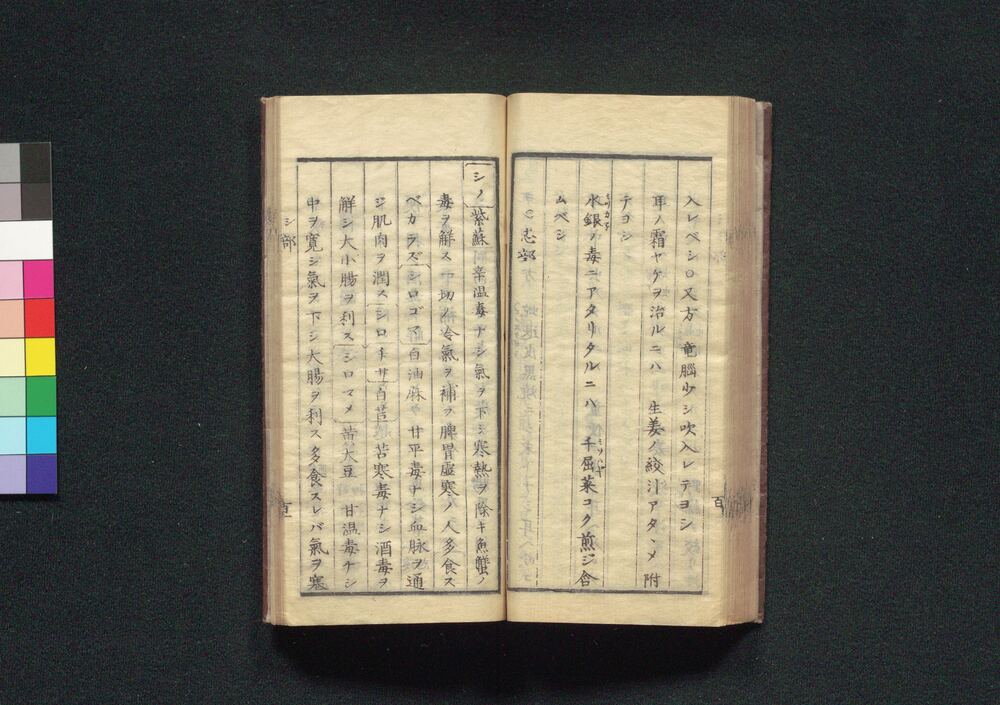 入レベシ○又方 竜腦少シ吹入レテヨシ
耳ノ霜ヤケヲ治ルニハ 生姜ノ絞汁アタヽメ附
テヨシ
水銀ノ毒ニアタリタルニハ 千屈菜コク煎ジ含
ムベシ
志部
百
シノ 紫蘇 辛温毒ナシ氣ヲ下シ寒熱ヲ除キ魚蟹ノ
毒ヲ解ス 一切ノ冷氣ヲ補フ脾胃虚寒ノ人多食ス
ベカラズ シロゴマ 白油麻 甘平毒ナシ血脉ヲ通
ジ肌肉ヲ潤ス シロチサ 白苣 苦寒毒ナシ酒毒ヲ
解シ大小腸ヲ利ス シロマメ 黄大豆 甘温毒ナシ
中ヲ寛シ氣ヲ下シ大腸ヲ利ス多食スレバ氣ヲ塞
シ部